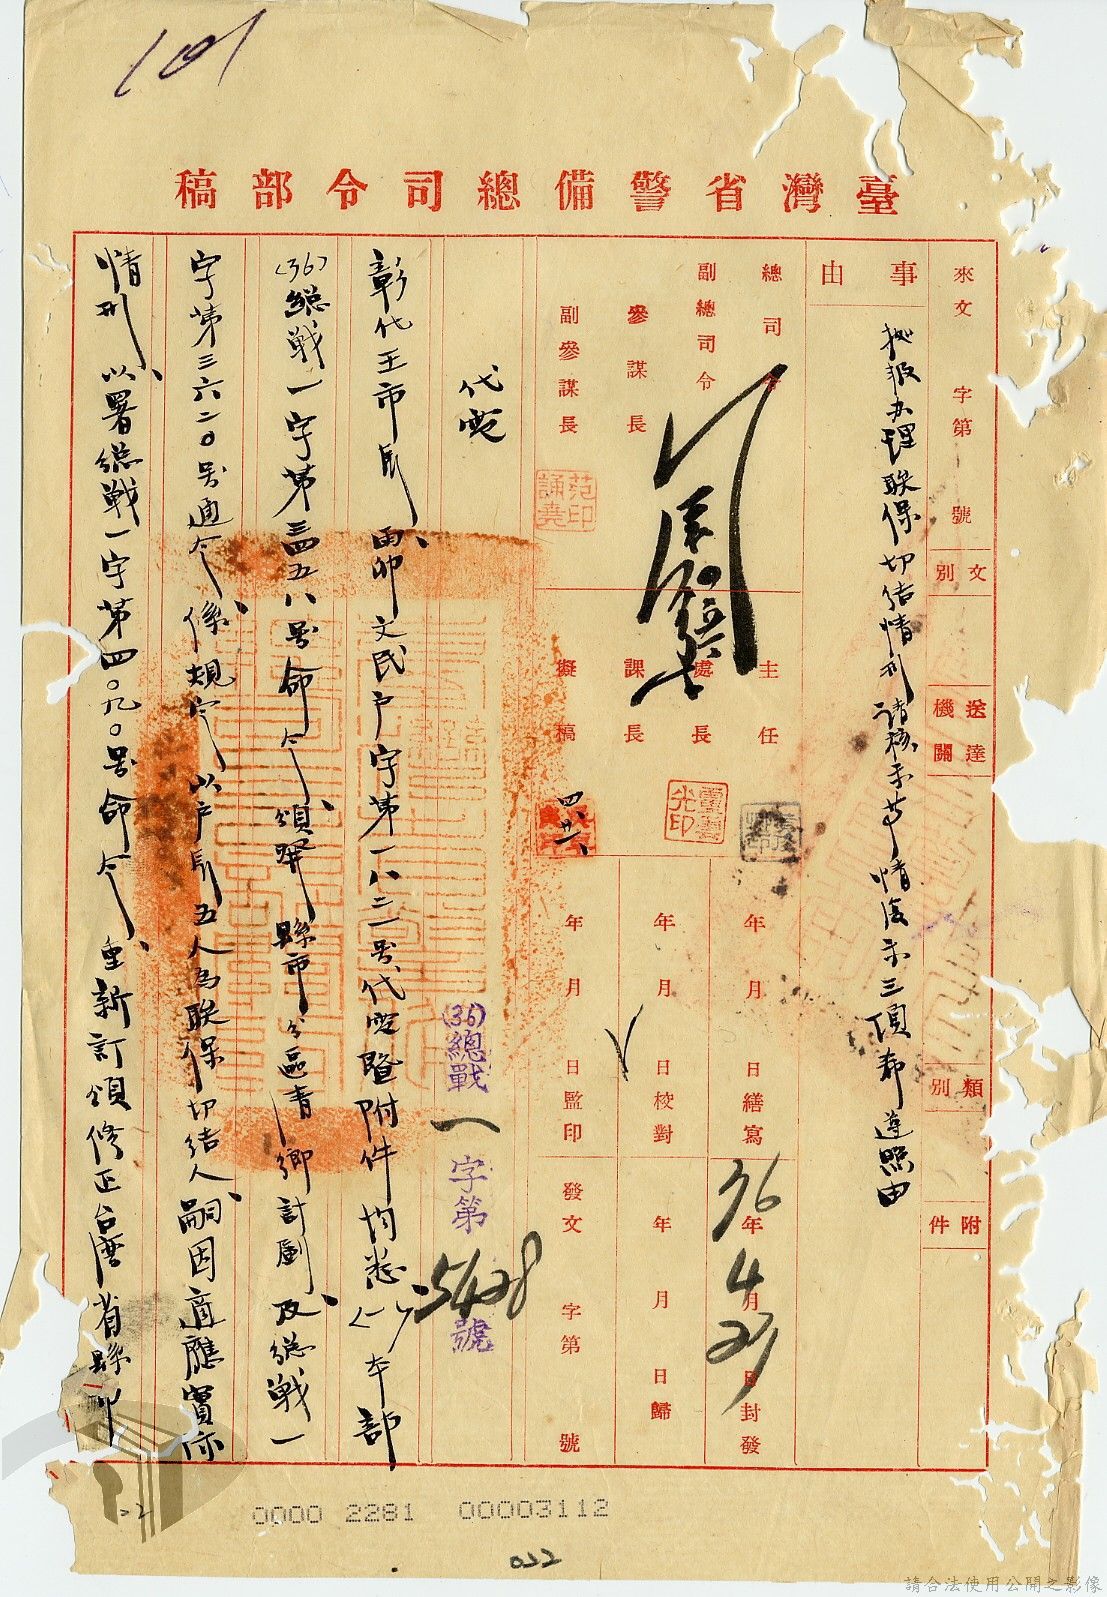 101
臺灣省警備總司令部稿
來文 字第 號
文別
送達機關
類別
附件
事由
據報办理联保切结情形请核示等情復示三項希遵照由
總司令
副總司令
參謀長
副參謀長
主任
處長
課長
擬稿
四、廿一、
范誦堯印
年 月 日繕寫
年 月 日校對
年 月 日監印
36年4月23日封發
年 月 日歸
發文 字第 號
(36)總戰一字第5428號
代電
彰化王市長、丙卯文民户字第一八三一号代電暨附件均悉(一)本部
(36)総战一字第三四五八号命令、頒畀縣市分區清鄉計劃、及総战一
字第三六二〇号通令、係規定以户長五人為联保切结人、嗣因適應實际
情形、以署総战一字第四〇九〇号命令、重新訂頒修正台灣省縣市
0000 2281 00003112
022
請合法使用公開之影像